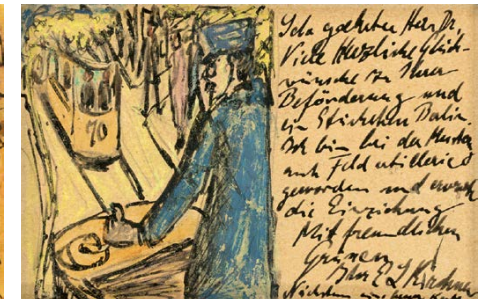 70
Sehr geehrter Herr Dr.
Viele herzliche Glück-
wünsche zu Ihrer
Beförderung und
ein Stückchen Berlin.
Ich bin bei der Musterung
auch Feldartillerist
geworden und erwarte
die Einziehung
Mit freundlichen
Grüssen
Ihr E L Kirchner